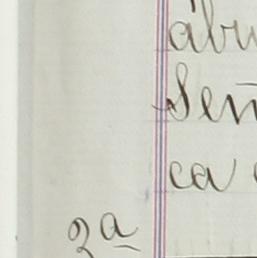 abu
Señ
ca
2ª